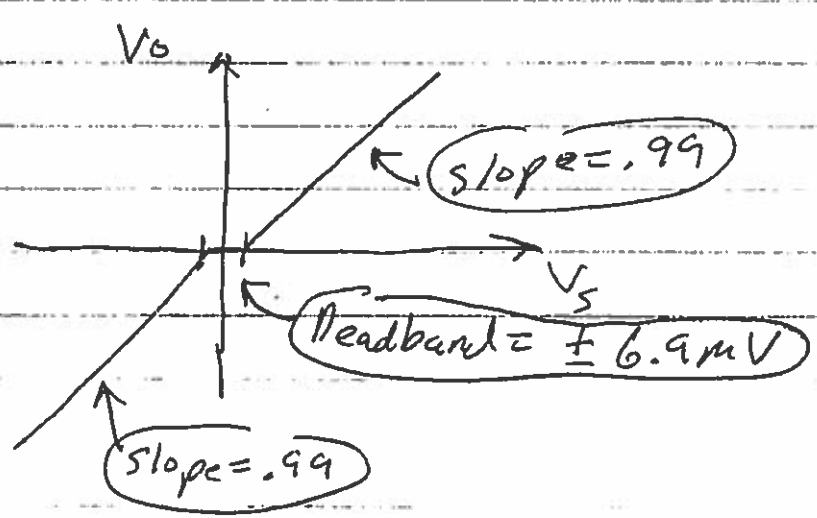 Vo
slope=.99
Vs
Deadband= ± 6.9mV
slope=.99